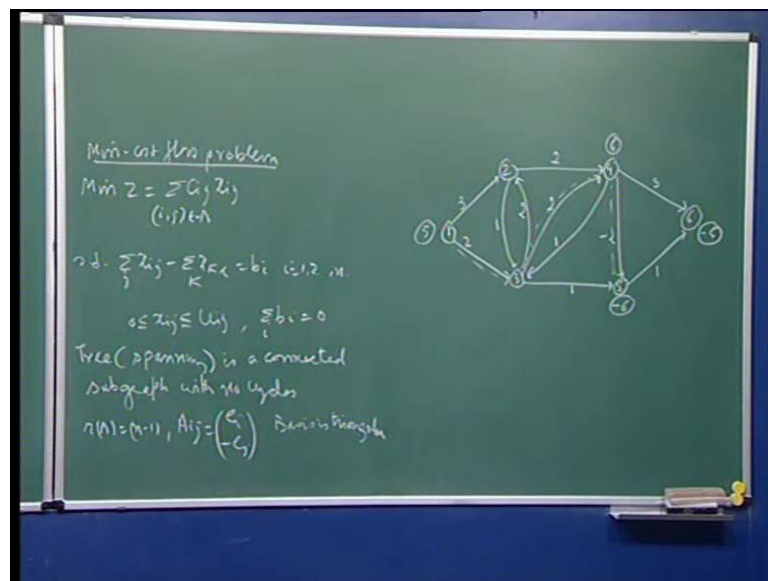 Min-cost flow problem
Min Z = Σ Cij xij
(i,j)∈A
s.t. Σj xij - Σk xki = bi i=1,2..n.
0≤ xij ≤ Uij , Σi bi = 0
Tree (spanning) is a connected
subgraph with no cycles
r(A)=(n-1), Aij = (ei -ej) Basis is triangular
6
2 2 4
3 3
5 1 1 2 2 1 -2 6 -5
2
3 1 5 1
-6